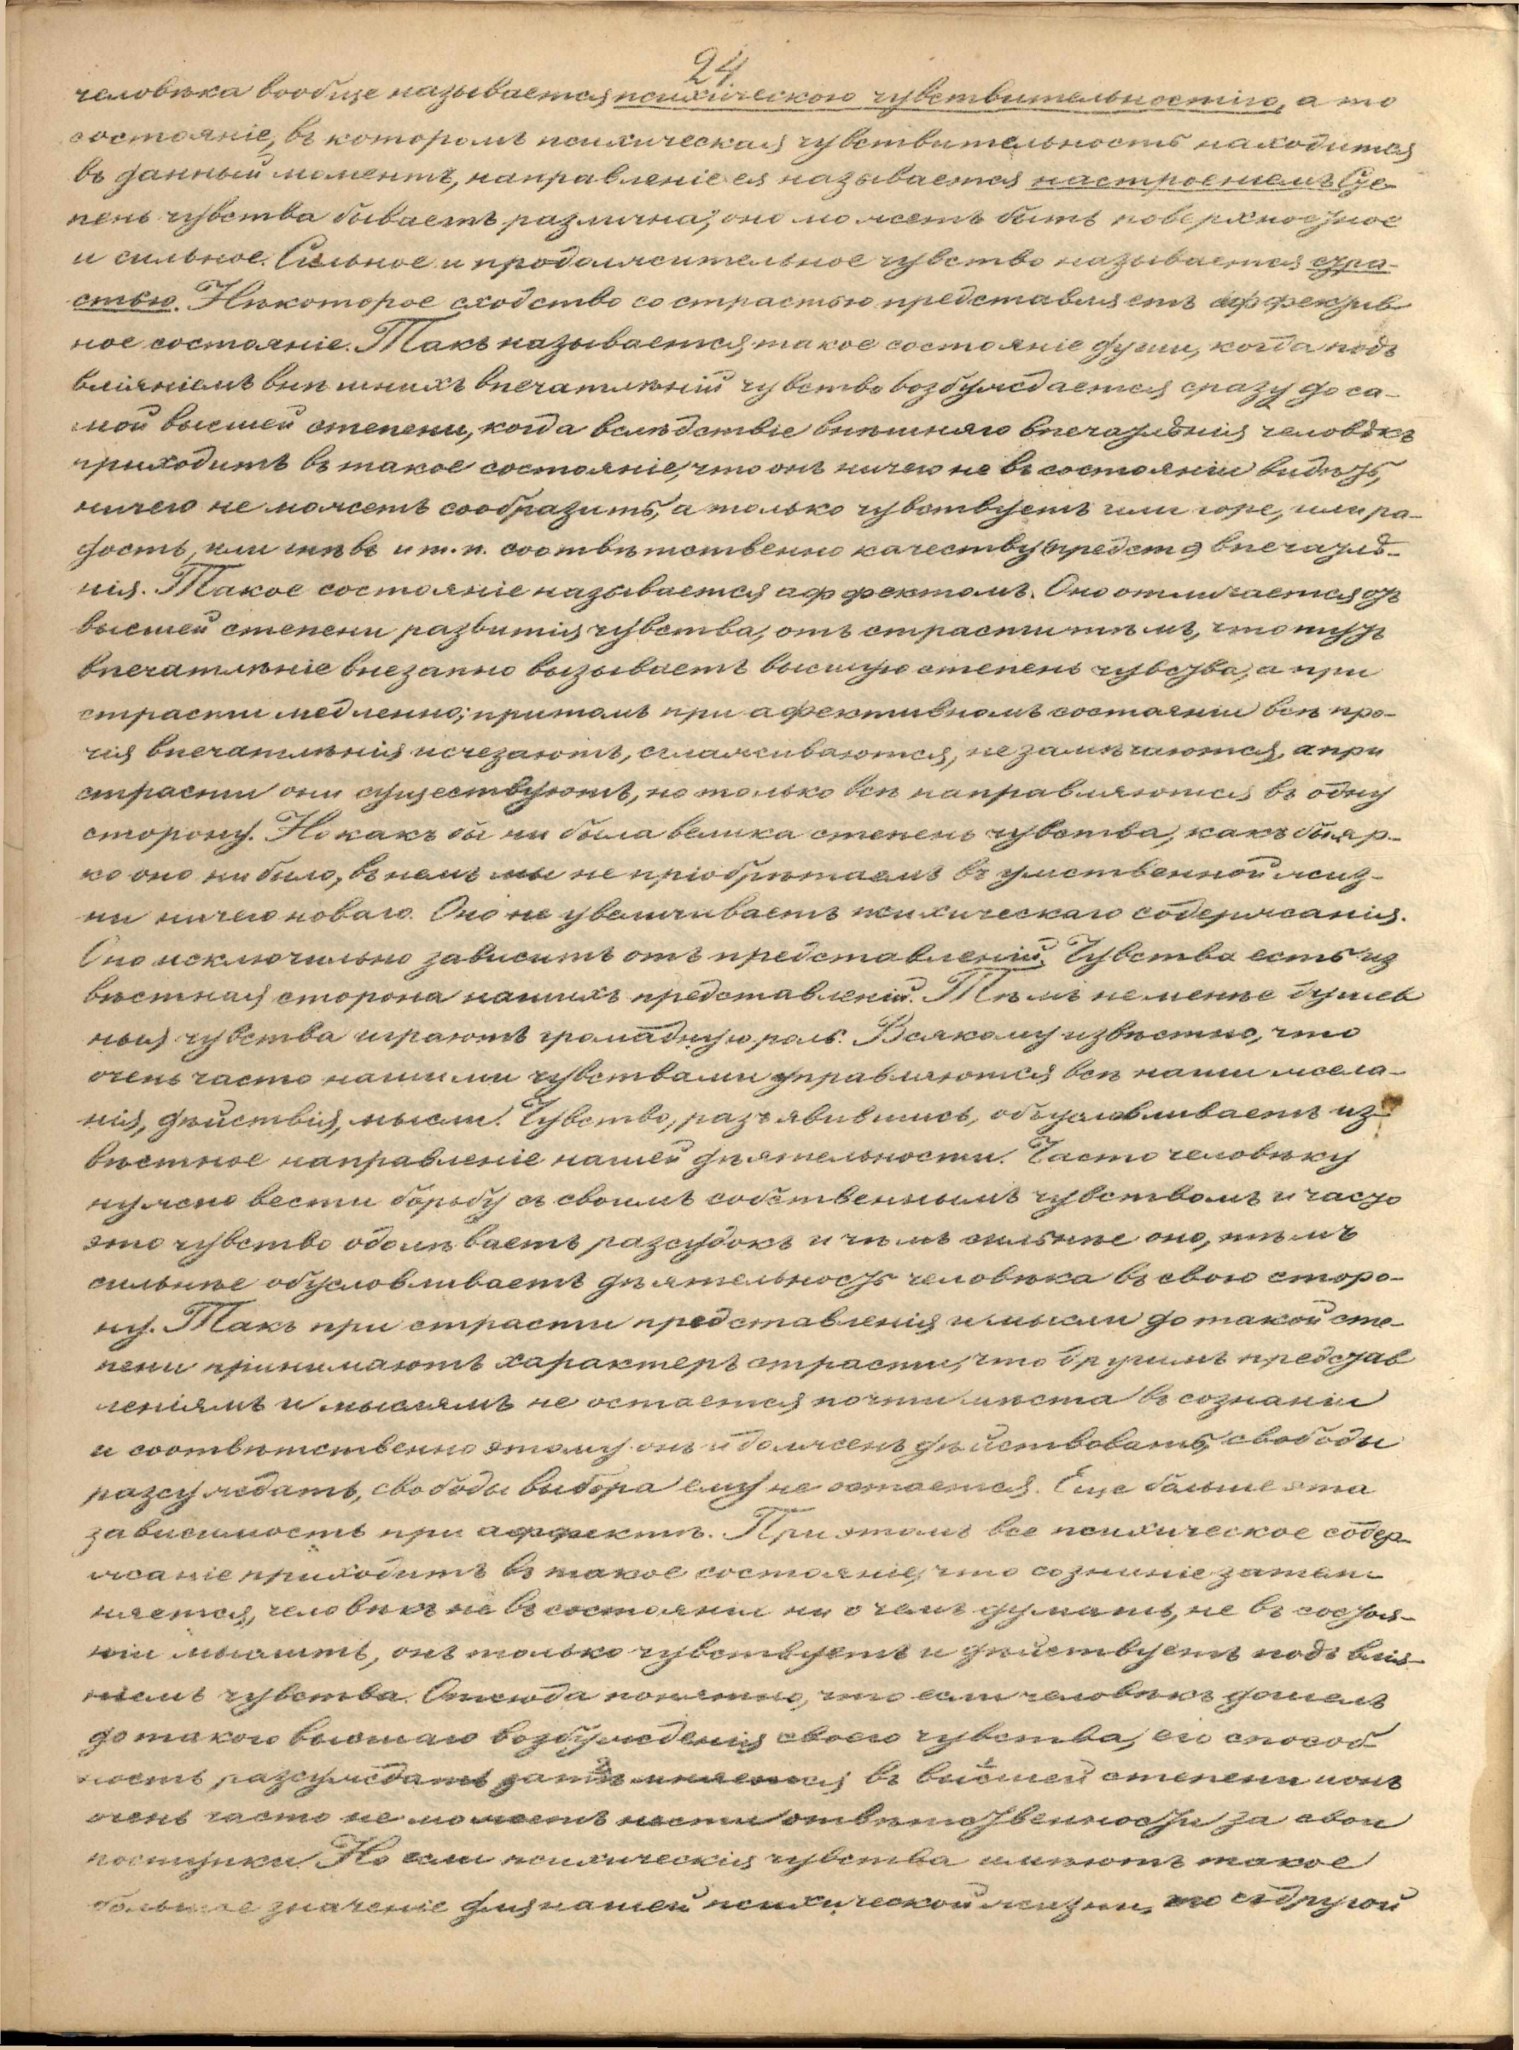 24.
человѣка вообще называется психическою чувствительностію, а то
состояніе, въ которомъ психическая чувствительность находится
въ данный моментъ, направленіе ея называется настроеніемъ. Сте-
пень чувства бываетъ различна, оно можетъ быть поверхностное
и сильное. Сильное и продолжительное чувство называется стра-
стью. Нѣкоторое сходство со страстью представляетъ аффектив
ное состояніе. Такъ называется такое состояніе души, когда подъ
вліяніемъ внѣшнихъ впечатлѣній чувство возбуждается сразу до са-
мой высшей степени, когда вслѣдствіе внѣшняго впечатлѣнія человѣкъ
приходитъ въ такое состояніе, что онъ ничего не въ состояніи видѣть,
ничего не можетъ сообразить, а только чувствуетъ или горе, или ра-
дость, или гнѣвъ и т. п. соотвѣтственно качеству предст впечатлѣ-
нія. Такое состояніе называется аффектомъ. Оно отличается отъ
высшей степени развитія чувства, отъ страсти тѣмъ, что тутъ
впечатлѣніе внезапно вызываетъ высшую степень чувства, а при
страсти медленно; притомъ при афективномъ состояніи всѣ про-
чія впечатлѣнія исчезаютъ, сглаживаются, не замѣчаются, а при
страсти они существуютъ, но только всѣ направляются въ одну
сторону. Но какъ бы ни была велика степень чувства, какъ бы яр-
ко оно ни было, въ немъ мы не пріобрѣтаемъ въ умственной жиз-
ни ничего новаго. Оно не увеличиваетъ психическаго содержанія.
Оно исключильно зависитъ отъ представленій. Чувства есть из
вѣстная сторона нашихъ представленій. Тѣмъ не менѣе душев
ныя чувства играютъ громадную роль. Всякому извѣстно, что
очень часто нашими чувствами управляются всѣ наши жела-
нія, дѣйствія, мысли. Чувство, разъ явившись, обусловливаетъ из-
вѣстное направленіе нашей дѣятельности. Часто человѣку
нужно вести борьбу съ своимъ собственнымъ чувствомъ и часто
это чувство одолѣваетъ разсудокъ и чѣмъ сильнѣе оно, тѣмъ
сильнѣе обусловливаетъ дѣятельность человѣка въ свою сторо-
ну. Такъ при страсти представленія и мысли до такой сте-
пени принимаютъ характеръ страсти, что другимъ представ
леніямъ и мыслямъ не остается почти мѣста въ сознаніи
и соотвѣтственно этому онъ и долженъ дѣйствовать, свободы
разсуждать, свободы выбора ему не остается. Еще больше эта
зависимость при аффектѣ. При этомъ все психическое содер-
жаніе приходитъ въ такое состояніе, что сознаніе затем-
няется, человѣкъ не въ состояніи ни о чемъ думать, не въ состоя-
ніи мыслить, онъ только чувствуетъ и дѣйствуетъ подъ влія-
ніемъ чувства. Отсюда понятно, что если человѣкъ дошелъ
до такого высшаго возбужденія своего чувства, его способ
ность разсуждать затемняется въ высшей степени и онъ
очень часто не можетъ нести отвѣтственности за свои
поступки. Но если психическія чувства имѣютъ такое
большое значеніе для нашей психической жизни, то съ другой